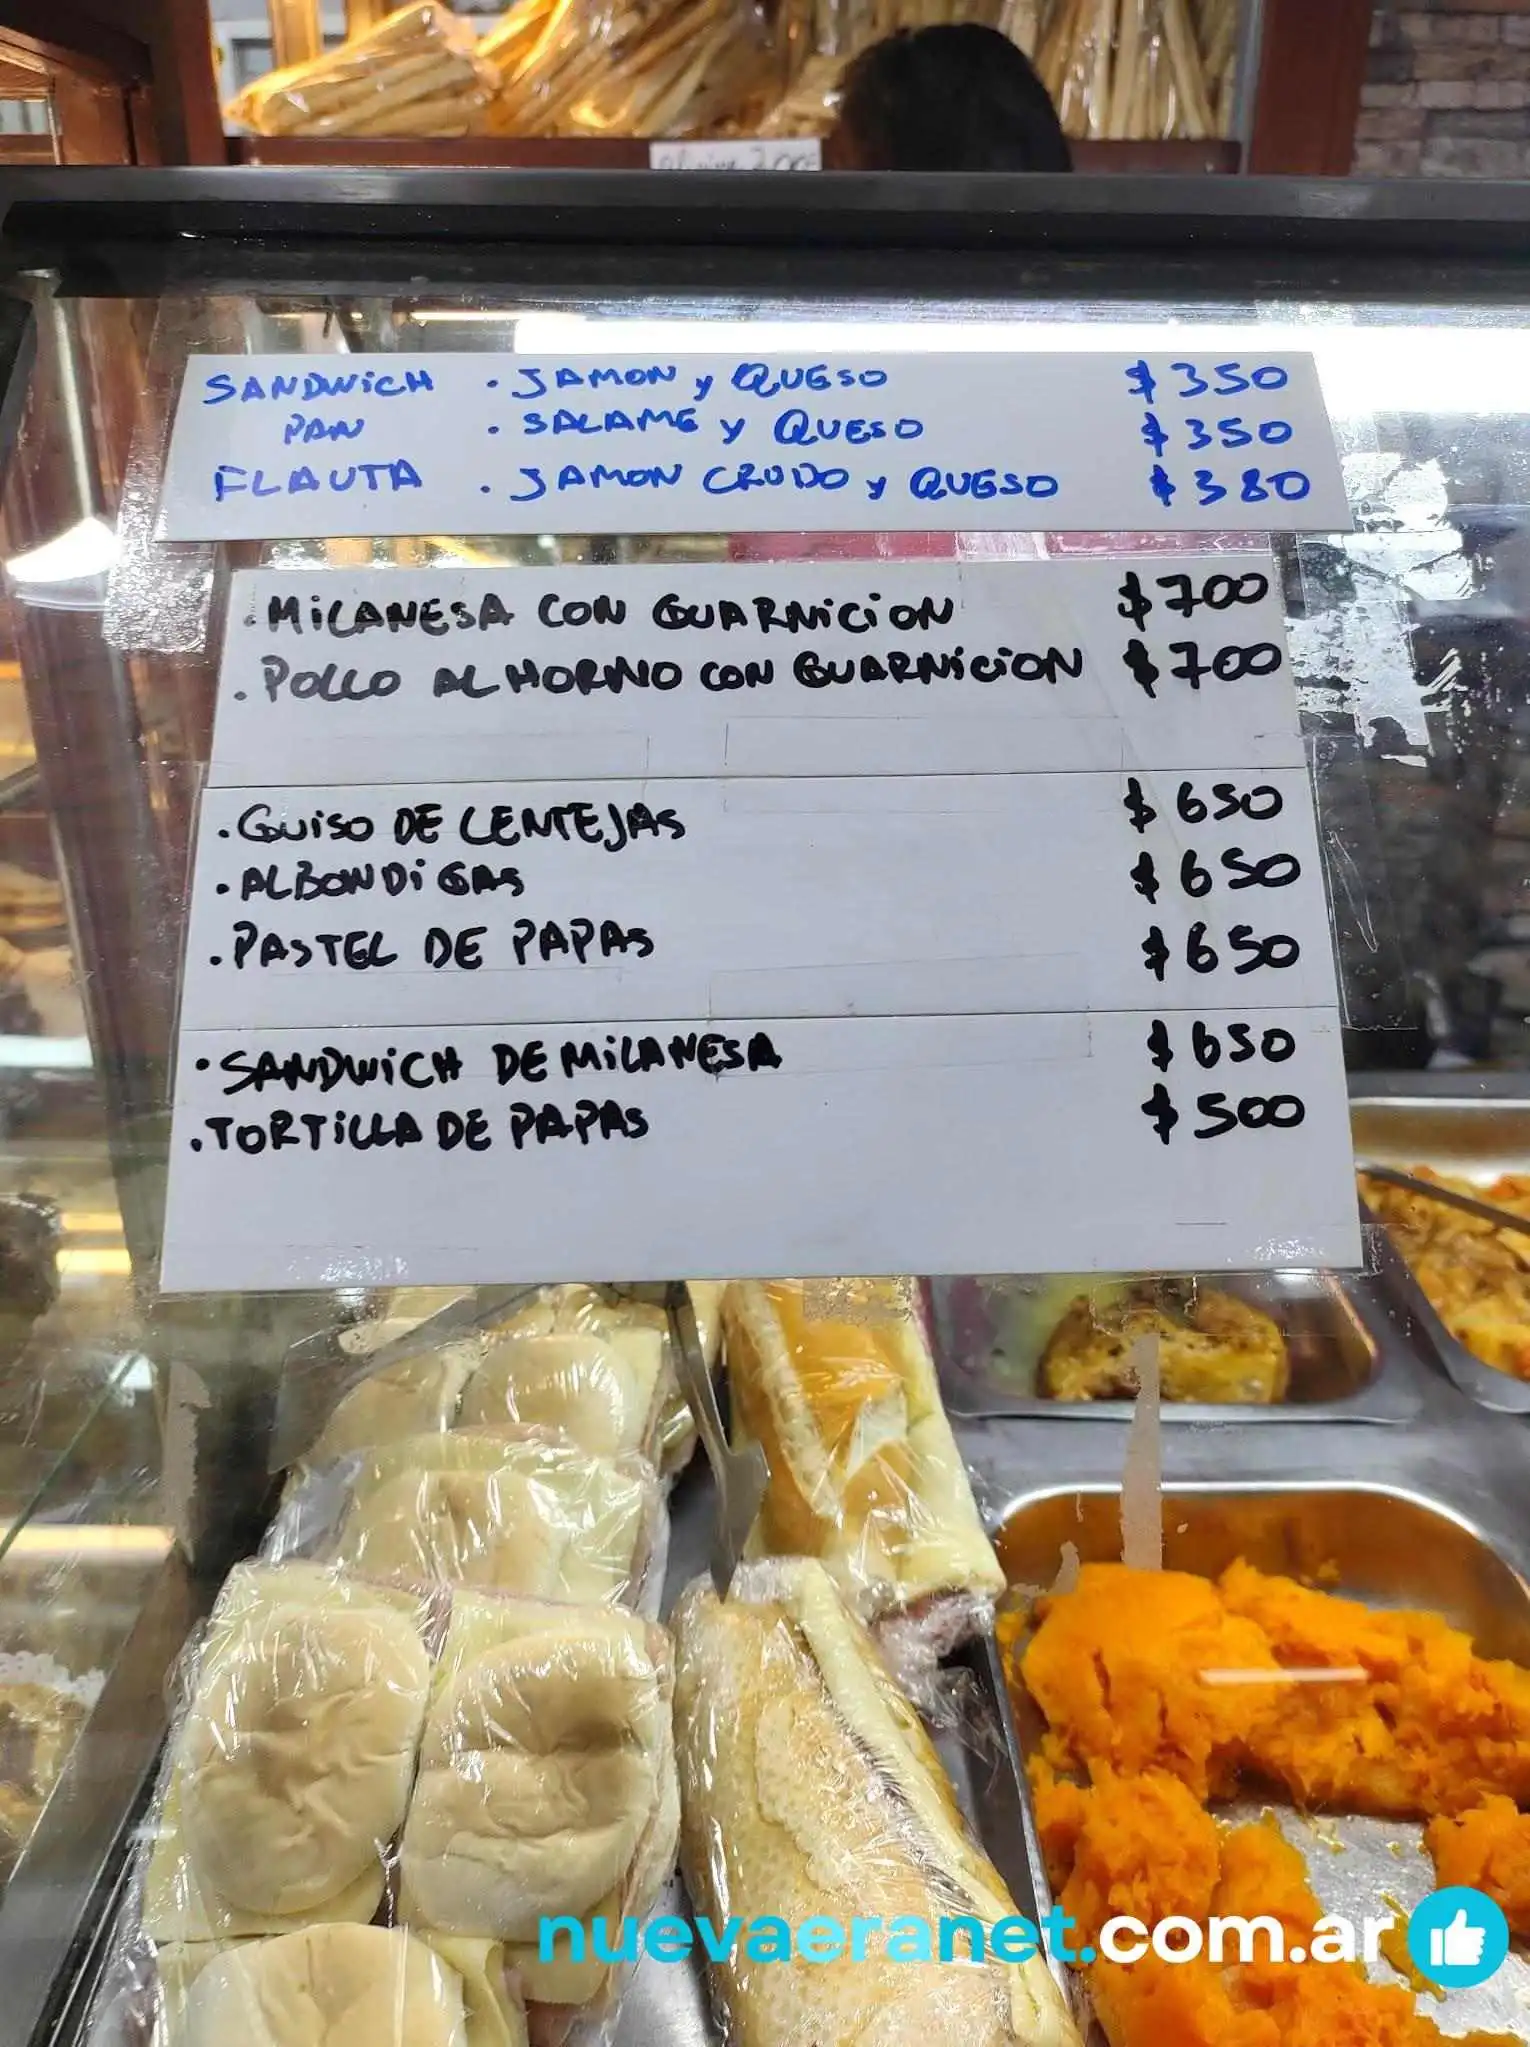 SANDWICH · JAMON y QUESO $350
PAN · SALAME y QUESO $350
FLAUTA · JAMON CRUDO y QUESO $380
· MILANESA CON GUARNICION $700
· POLLO AL HORNO CON GUARNICION $700
· GUISO DE LENTEJAS $650
· ALBONDIGAS $650
· PASTEL DE PAPAS $650
· SANDWICH DE MILANESA $650
· TORTILLA DE PAPAS $500
nuevaeranet.com.ar